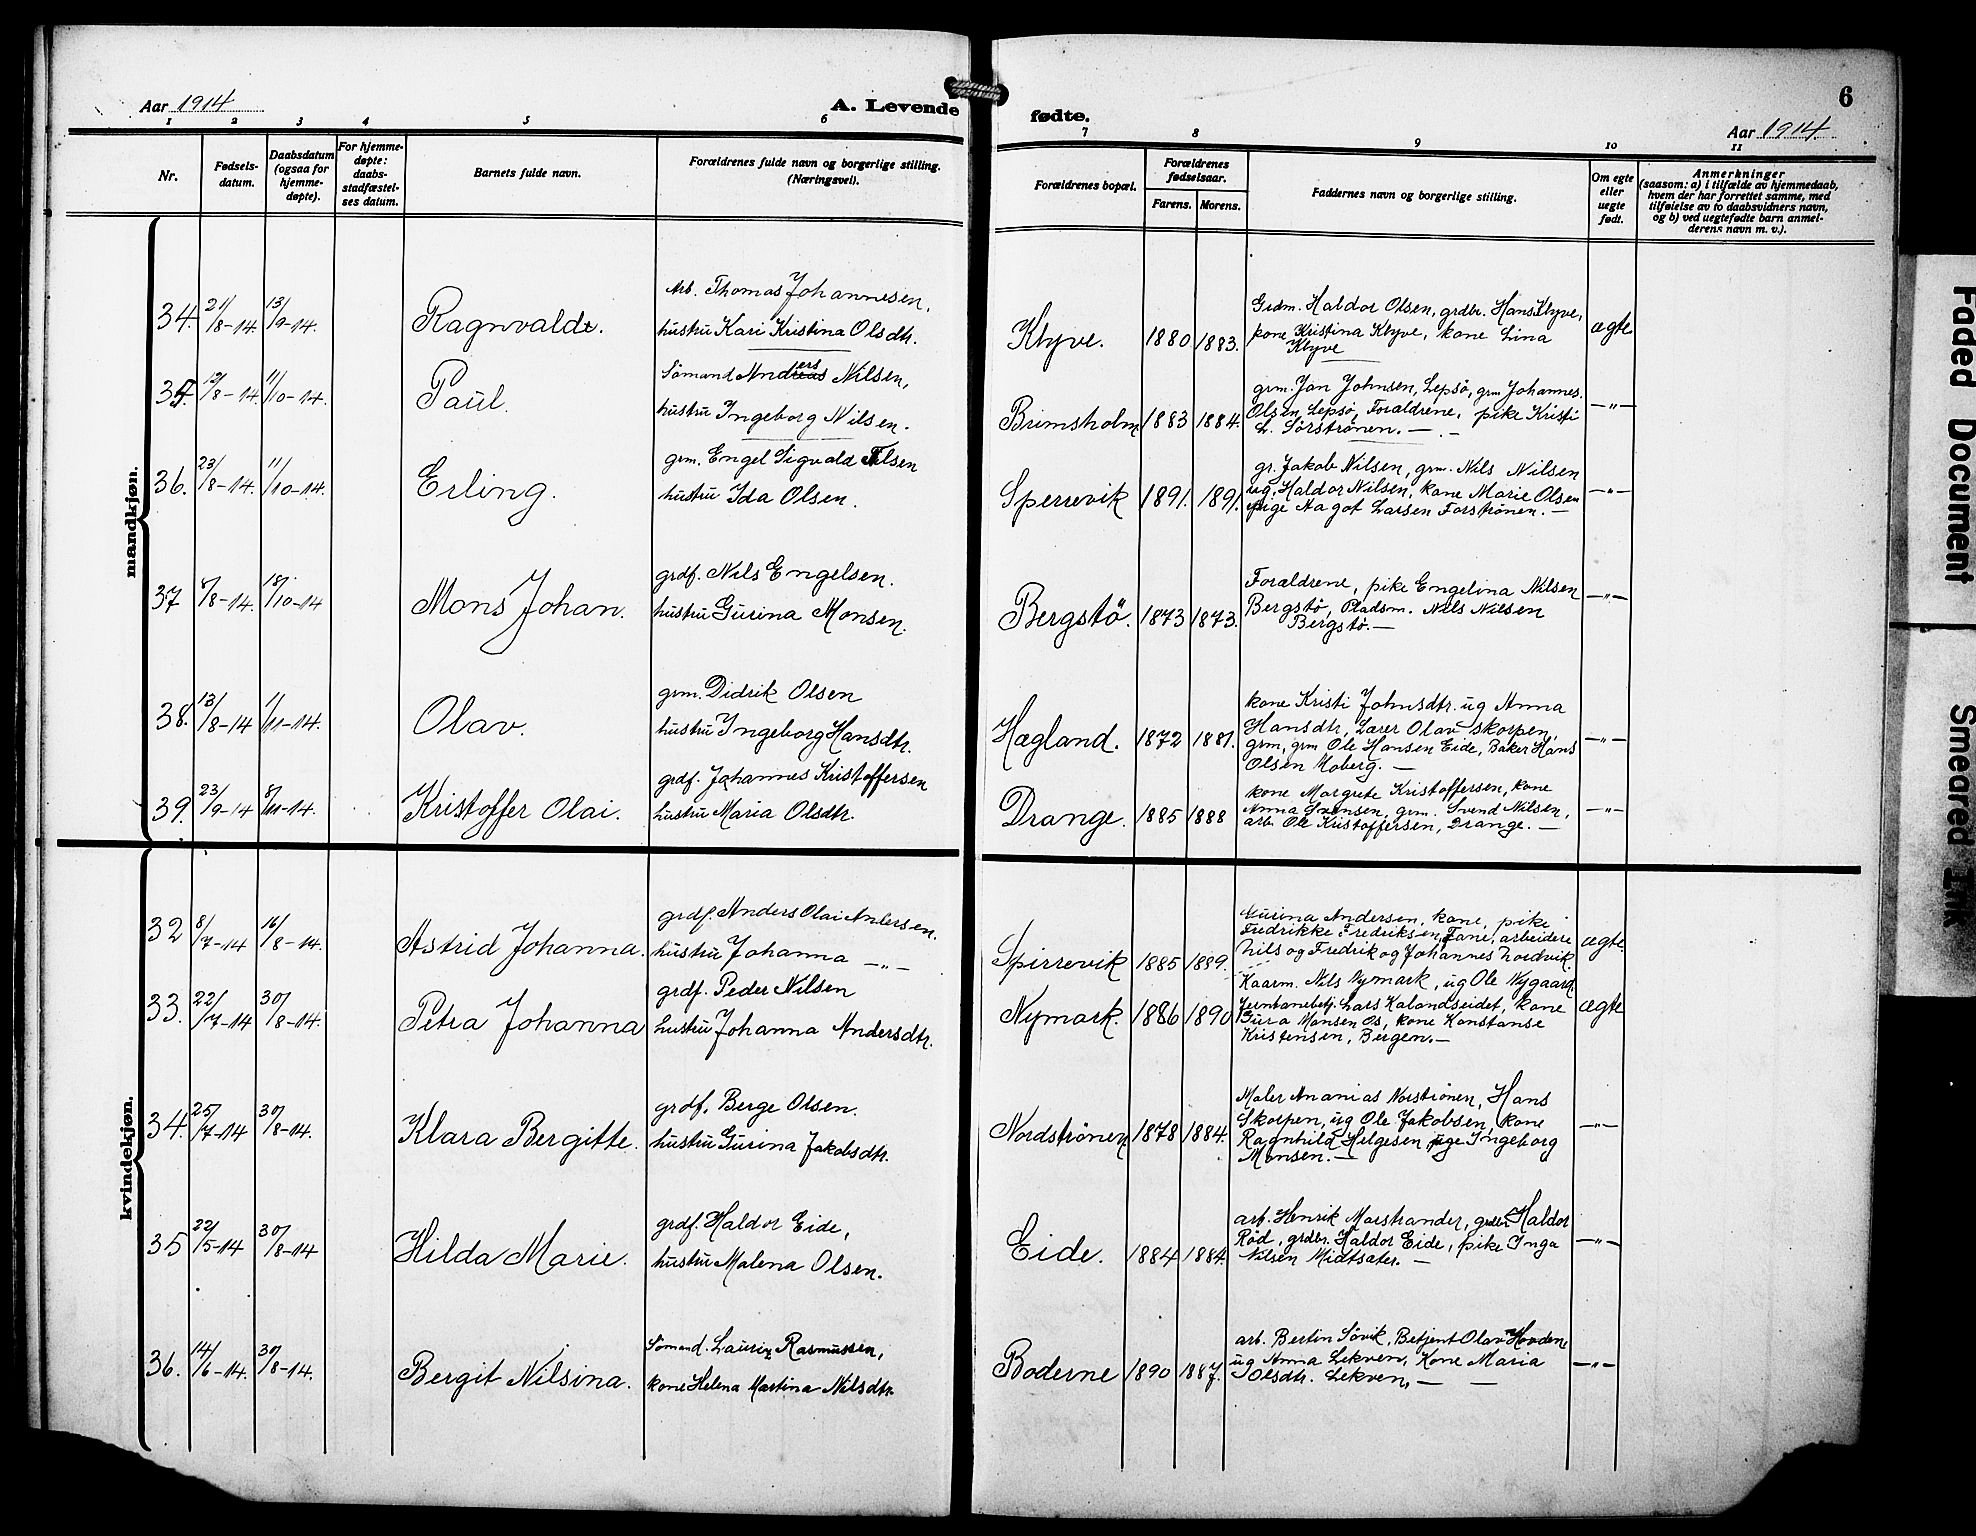 Aar 1914
A. Levende
fødte.
6
Aar 1914
1 2 3 4 5 6 7 8 9 10 11
Nr.
Fødsels-
datum.
Daabsdatum
(ogsaa for
hjemme-
døpte).
For hjemme-
døpte:
daabs-
stadfæstel-
ses datum.
Barnets fulde navn.
Forældrenes fulde navn og borgerlige stilling.
(Næringsvei).
Forældrenes bopæl.
Forældrenes
fødselsaar.
Farens. Morens.
Faddernes navn og borgerlige stilling.
Om egte
eller
uegte
født.
Anmerkninger
(saasom: a) i tilfælde av hjemmedaab,
hvem der har forrettet samme, med
tilføielse av to daabsvidners navn,
og b) ved uegtefødte barn anmel-
derens navn m. v.).
mandkjøn.
34. 21/8-14. 13/9-14. Ragnvald.
Arb. Thomas Johannesen,
hustru Kari Kristina Olsdtr.
Klyve. 1880 1883.
Grdm. Haldor Olsen, grdbr. Hans Klyve,
kone Kristina Klyve, kone Lina
Klyve
ægte
35. 12/8-14. 11/10-14. Paul.
Sömand Anders Nilsen,
hustru Ingeborg Nilsen.
Brimsholm 1883 1884.
grm. Jan Johnsen, Lepsø, grm Johannes
Olsen, Lepsø, Forældrene, pike Kristi
L. Sörströnen. —
—„—
36. 23/8-14. 11/10-14. Erling.
grm. Engel Sigvald
hustru Ida Olsen.
Sperrevik 1891. 1891.
gr. Jakob Nilsen, grm. Nils Nilsen
ug. Haldor Nilsen, kone Marie Olsen
pige Aagot Larsen Forströnen. —
—„—
37 8/8-14. 18/10-14 Mons Johan.
grdf. Nils Engelsen.
hustru Gurina Monsen.
Bergstö. 1873 1873.
Forældrene, pike Engelina Nilsen
Bergstö, Pladsm. Nils Nilsen
Bergstø. —
—„—
38. 13/8-14 1/11-14. Olav.
grm. Didrik Olsen
hustru Ingeborg Hansdtr.
Hægland. 1872 1881.
kone Kristi Johnsdtr. ug Anna
Hansdtr, Lærer Olav Skorpen,
grm, grm Ole Hansen Eide, Baker Hans
Olsen Moberg. —
—„—
39. 23/9-14 8/11-14. Kristoffer Olai.
grdf. Johannes Kristoffersen
hustru Maria Olsdtr.
Drange. 1885 1888
kone Margrete Kristoffersen, kone
Anna Svensen, grm. Svend Nilsen,
arb. Ole Kristoffersen, Drange. —
—„—
kvindekjøn.
32 8/7-14 16/8-14. Astrid Johanna.
grdf. Anders Olai Andersen.
hustru Johanna —„—
Spirrevik 1885 1889.
Gurina Andersen, kone, pike
Fredrikke Fredriksen, Fane, arbeidere
Nils og Fredrik og Johannes Nordvik.
ægte
33. 22/7-14 30/8-14. Petra Johanna
grdf. Peder Nilsen
hustru Johanna Andersdtr.
Nymark. 1886 1890
Kaarm. Nils Nymark, ug Ole Nygaard.
Jernbanebetj. Lars Kalandseidet, kone
Gura Mansen Os, kone Konstanse
Kristensen, Bergen. —
ægte
34. 25/7-14 30/8-14. Klara Bergitte.
grdf. Berge Olsen.
hustru Gurina Jakobsdtr.
Nordströnen 1878 1884.
Maler Ananias Norströnen, Hans
Skorpen, ug Ole Jakobsen, kone
Ragnhild Helgesen pige Ingeborg
Monsen. —
—„—
35 22/5-14 30/8-14 Hilda Marie.
grdf. Haldor Eide,
hustru Malena Olsen.
Eide. 1884 1884.
arb. Henrik Marstrander, grdbr. Haldor
Röd, grdbr. Haldor Eide, pike Inga
Nilsen Midtsæter. —
—„—
36. 14/6-14. 30/8-14. Bergit Nilsina.
Sömand. Lauriz Rasmussen,
kone Helena Martina Nilsdtr.
Boderne 1890 1887.
arb. Bertin Sövik, Betjent Olav
ug Anna Lekven, Kone Maria
Olsdtr. Lekven, — —
—„—
Faded Document
Smeared Ink